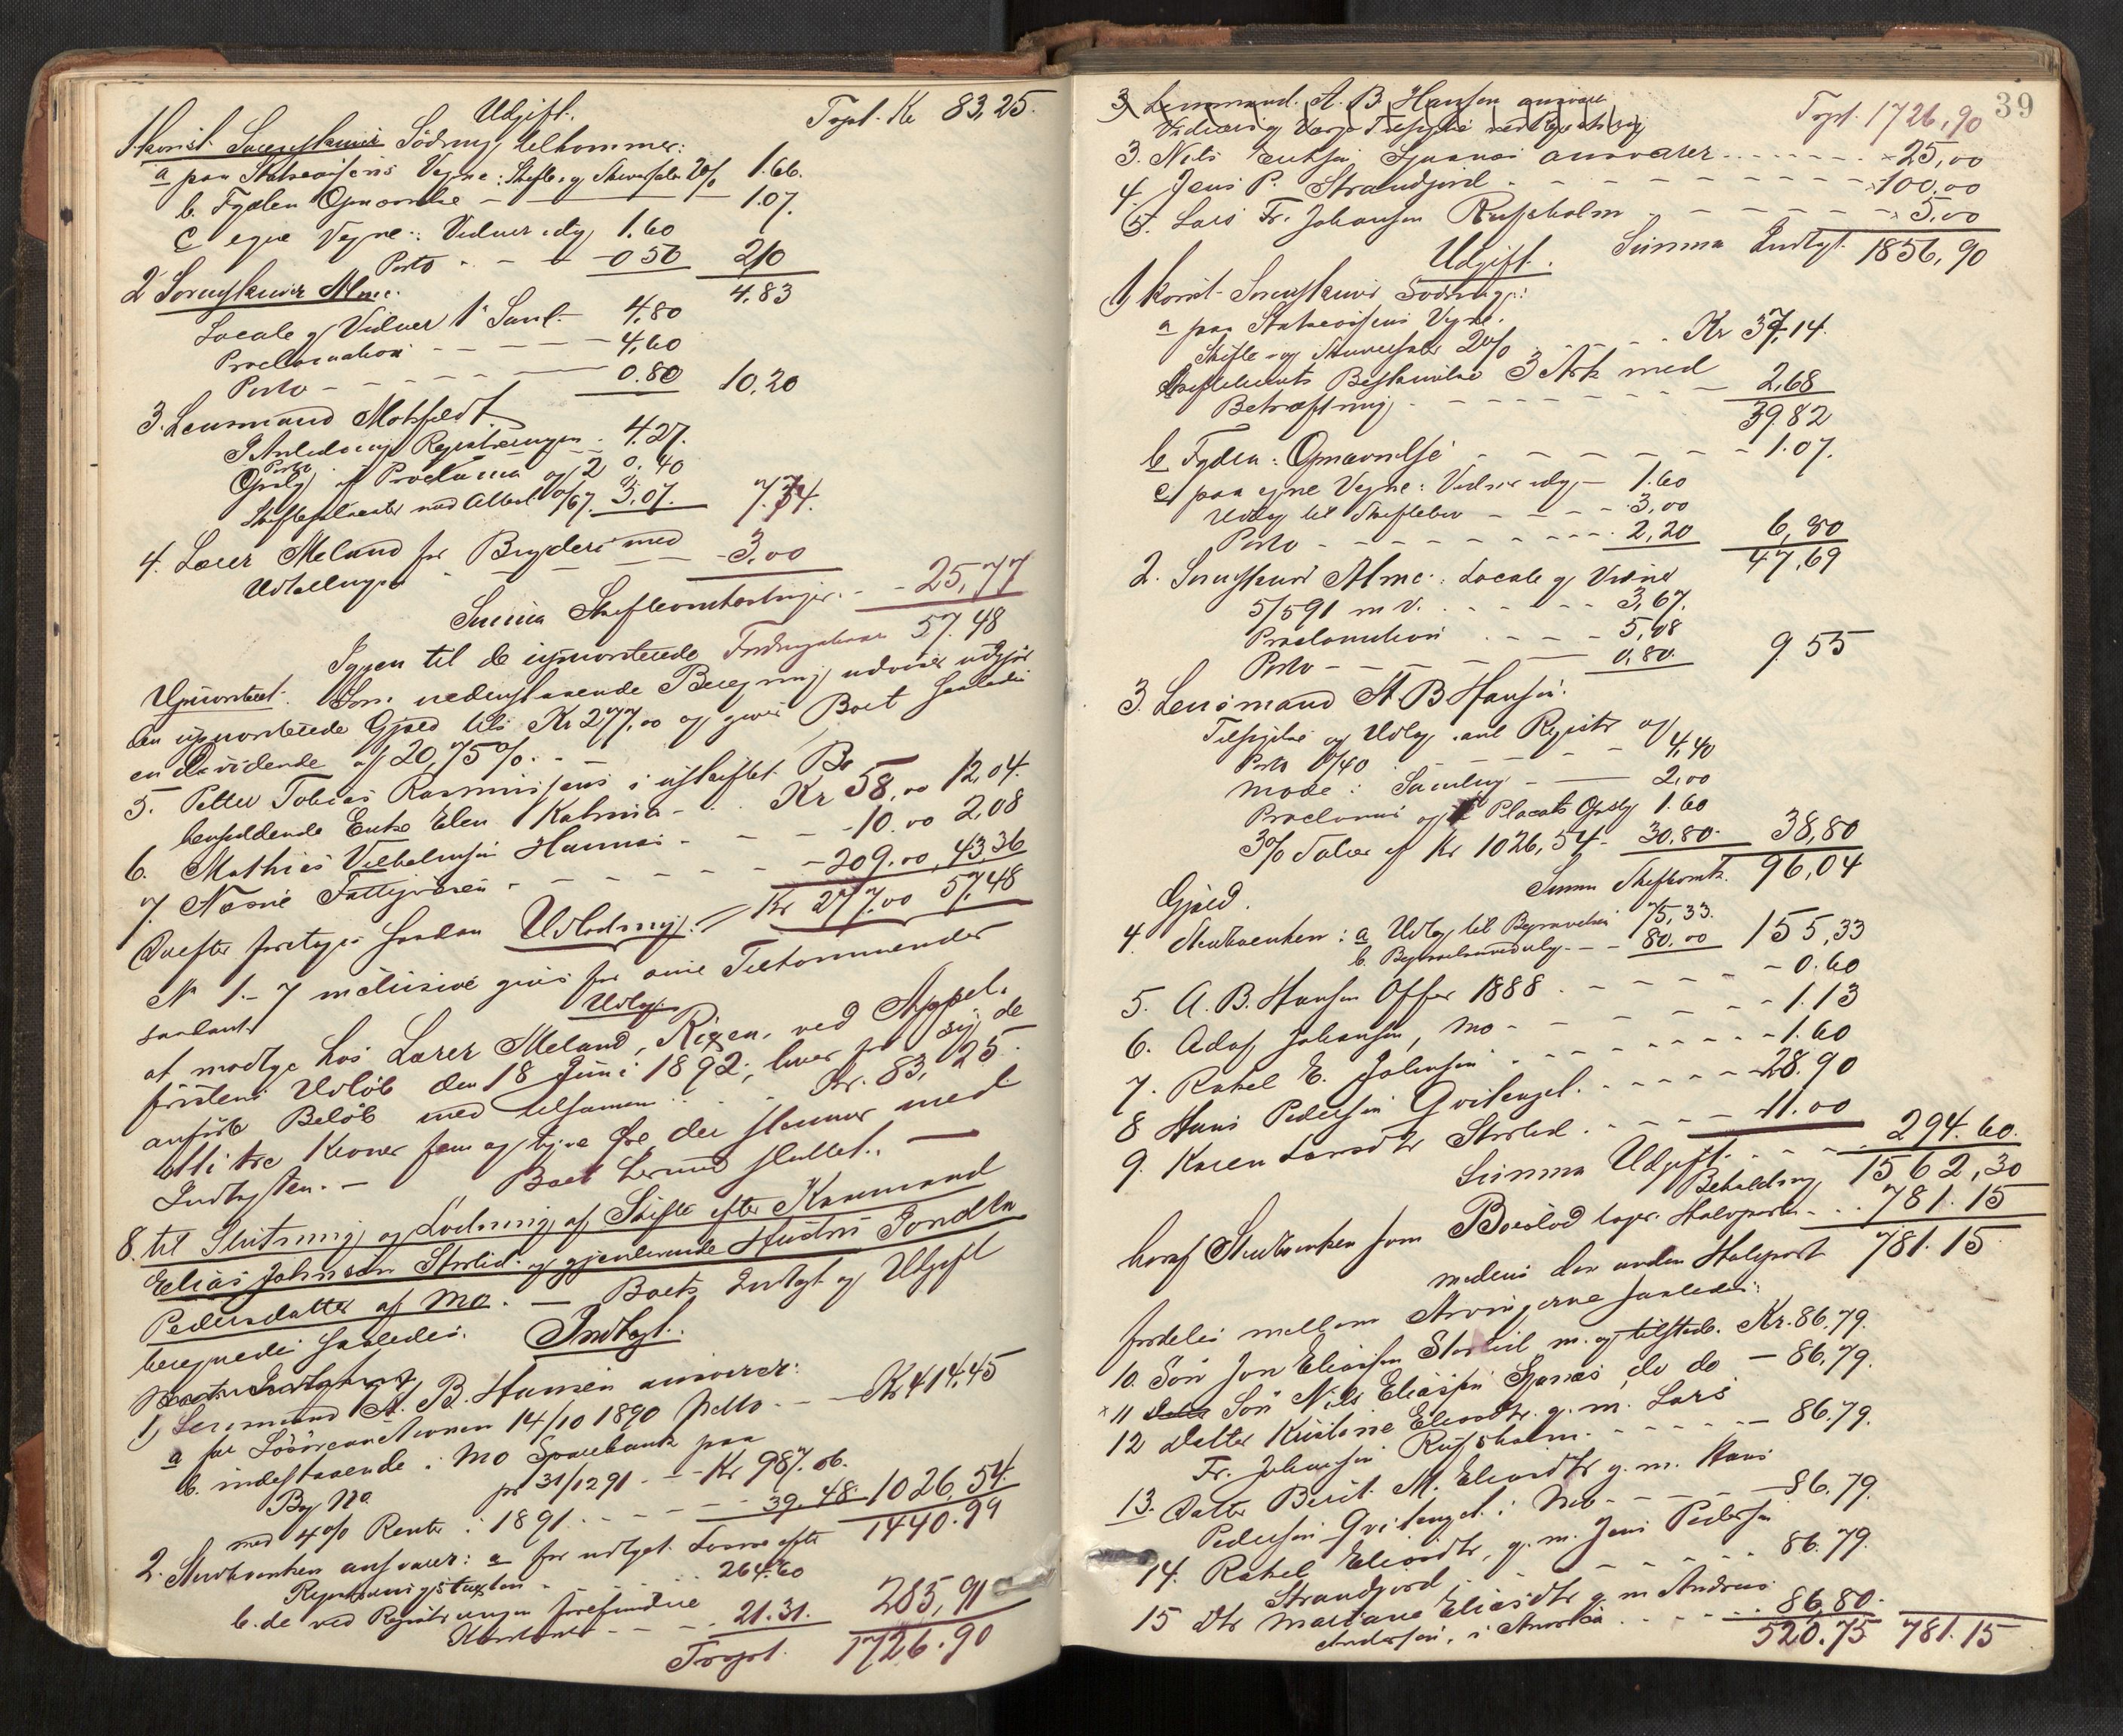 Udgift. Trpt. Kr 83,25.
1. konst. Sorenskriver Södring tilkommer:
a paa Statscassens Vegne: Skifte- og Skriversaler 2% 1.66.
b. Fydlen Opnævnelse - 1.07.
c egne Vegne: Vidner idag 1.60
Porto - - - 0 50 2,10
4,83
2 Sorenskriver Alme.
Locale og Vidner 1ste Saml. 4,80
Proclamation - - - - 4,60
Porto - - - - 0.80 10,20
3. Lensmand Motsfeldt
I Anledning Registreringen - 4.27.
Porto 0.40
Opslg af Proclama og 2
Skifteplacater med Attest 3,07. 7.74.
4. Lærer Meland for Bryderi med
Udtællingen - - 3,00
Summa Skifteomkostninger. - 25,77
Igjen til de uprioriterede Fordringshavere 57.48
Uprioriteret. Som nedenstaaende Beregning udviser udgjør
den uprioriterede Gjæld tils Kr 277,00 og giver Boet saaledes
en Dividende af 20,75%. - -
5. Petter Tobias Rasmussens i uskiftet Bo
hensiddende Enke Elen Katrina - Kr 58,00 12,04.
6. Mathias Vilhelmsen Hamnes - - - 10.00 2,08
7. Næsne Fattigvæsen - - - - 209.00, 43,36
Kr 277.00 57.48
Derefter foretoges saadan Udlodning:
No 1 - 7 inclusive gives for sine Tilkommender
saadant Udlæg
at modtage hos Lærer Meland, Rigen, ved Appel.
fristens Udlöb den 18 Juni 1892, hver for sig de
anførte Beløb med tilsammen - - Kr. 83,25.
otti tre Kroner fem og tyve Øre, der stemmer med
Indtægten. - Boet hermed sluttet. -
8. til Slutning og Lodning af Skifte efter Kaarmand
Elias Johnsen Storlid og gjenlevende Hustru Jondla
Pedersdatter af Mo. - Boets Indtægt og Udgift
beregnedes saaledes. Indtægt.
1) Lensmand A. B. Hansen ansvarer:
a for Lösöreauctionen 14/10 1890 Netto - - Kr 414,45
b. indestaaende i Mo Sparebank paa
Bog No pr 31/12 91 - - Kr 987.06.
med 4% Rente i 1891 - - - 39.48. 1026,54.
1440.99
2. Stervboenken ansvarer: a for udtaget Løsøre efter
Registreringstaxten - 264.60
b. de ved Registreringen forefundne
Kontanter - - - 21.31. 285,91
Trspt. 1726.90
39
3 Lensmand. A. B. Hansen ansvarer Trspt. 1726,90
3. Nils Eliassen Sjaanæs ansvarer - - - - - 25,00
4. Jens P. Strandjord - - - - - - - - - 100.00
5. Lars Fr. Johansen Russholm - - - - - 5,00
Summa Indtægt. 1856,90
Udgift.
1) konst. Sorenskriver Södring:
a paa Statscassens Vegne.
Skifte- og Skriversaler 2% - - - Kr 37,14.
Skiftebrevets Beskrivelse 3 Ark med
Betræftning - - - - - - - 2,68
39,82
b Fydlen: Opnævnelse - - - - - - 1.07.
c) paa egne Vegne: Vidner idag - 1.60
Udlæg til Skiftebrev - - - - 3,00
Porto - - - - - - - - 2,20 6,80
47,69
2. Sorenskriver Alme: Locale og Vidner
5/5 91 m V. - - - - 3,67.
Proclamation - - - - 5,08
Porto - - - - 0,80. 9 55
3. Lensmand A. B Hansen.
Tilsigelse og Udlæg anl. Registr og
Porto 0/40 - - - 4,40
Møde i Samling - - 2,00
Proclama og Placats Opslg 1.60
3% Salær af Kr 1026,54 - 30.80. 38,80
Summa Skifteomk. 96,04
Gjæld.
4. Stervboenken: a Udlæg til Begravelsen 75,33.
b. Begravelsesudlæg - - 80.00 155,33
5. A. B. Hansen Offer 1888 - - - - - 0.60
6. Adolf Johansen, Mo - - - - - - - 1.13
7. Rakel E. Johnsen - - - - - - - - 1.60
8 Hans Pedersen Qvitenget. - - - - - 28.90
9. Karen Larsdtr Storlid - - - 11.00
Summa Udgift - - - 294.60.
Beholdning 1562,30
hvoraf Stervboenken som Boeslod tager Halvparten - - 781.15
medens den anden Halvpart 781.15
fordeles mellem Arvingerne saaledes:
10. Sön Jon Eliassen Storlid m. og tilstede. Kr. 86.79.
11 Sön Nils Eliassen Sjonæs, do do - 86,79.
12 Datter Kristine Eliasdtr. g. m. Lars
Fr. Johansen Russholm. - - - - - 86.79.
13. Datter Berit M. Eliasdtr g. m. Hans
Pedersen Qvitenget i Mo - - - - 86.79.
14. Rakel Eliasdtr, g. m. Jens Pedersen
Strandjord - - - - - - 86.79.
15 Dtr Mariane Eliasdtr g m Andreas
Andersen, i Amerika - - - 86,80.
520.75 781.15